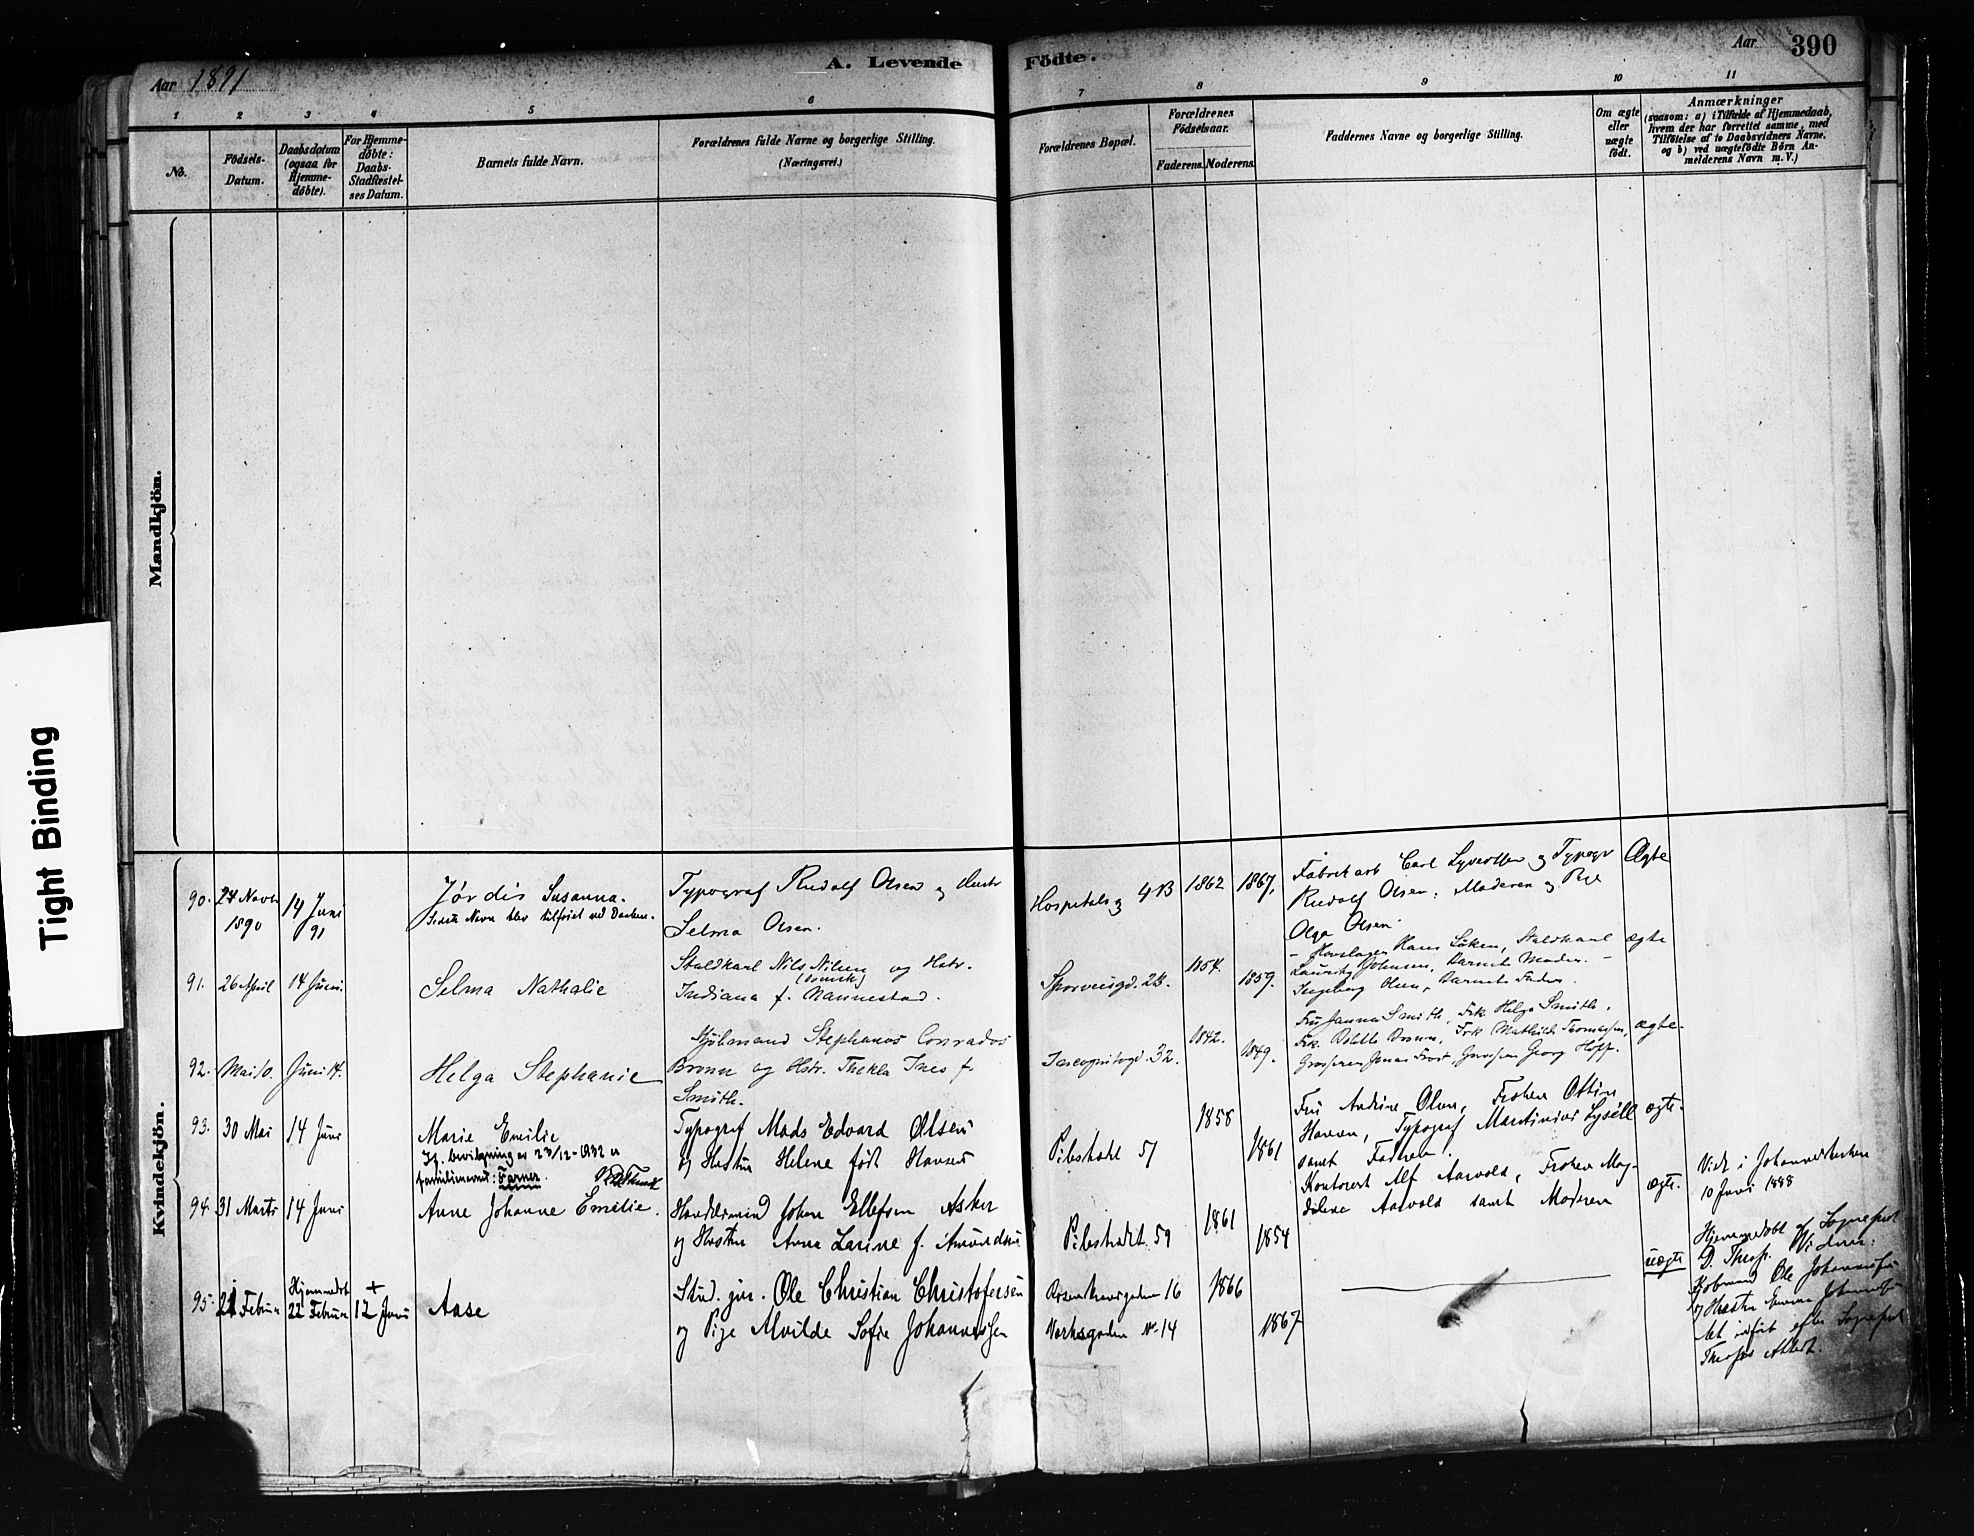 Aar 1891
A. Levende
Födte.
Aar
390
1
2
3
4
5
6
7
8
9
10
11
No.
Födsels-
Datum.
Daabsdatum
(ogsaa for
Hjemme-
döbte).
For Hjemme-
döbte:
Daabs-
Stadfæstel-
ses Datum.
Barnets fulde Navn.
Forældrenes fulde Navne og borgerlige Stilling.
(Næringsvei.)
Forældrenes Bopæl.
Forældrenes
Födselsaar.
Faderens. Moderens.
Faddernes Navne og borgerlige Stilling.
Om ægte
eller
uægte
födt.
Anmærkninger
(saasom: a) i Tilfælde af Hjemmedaab,
hvem der har forrettet samme, med
Tilföielse af to Daabsvidners Navne,
og b) ved uægtefödte Börn An-
melderens Navn m. V.)
Mandkjön.
Tight Binding
Kvindekjön.
90.
24 Novbr
1890
14 Juni
91
Jørdis Susanna.
Sidste Navn blev tilføiet ved Daaben.
Typograf Rudolf Olsen og Hustr
Selma Olsen.
Hospitalsg 4B
1862
1867,
Fabrikarb Carl og Typogr
Rudolf Olsen; Moderen og Pige
Olga Olsen
Ægte
91.
26 April
14 Juni.
Selma Nathalie
Staldkarl Nils Nilsen og Hstr.
(svensk)
Indiana f. Nannestad.
Sporveisgd. 2B.
1854.
1859.
Hans Løken, Staldkarl
Lauritz Johnsen, Barnets Moder. –
Ingeborg Olsen, Barnets Fader.
ægte
92.
Mai 10.
Juni 14.
Helga Stephanie
Kjøbmand Stephanos Conrados
Brown og Hstr. Thekla Ines f.
Smith.
32.
1842.
1849.
Fru Janna Smith, Frk Helga Smith,
Frk. Mathilde Thomassen,
Grosserer Jonas Georg Hoff.
ægte.
93.
30 Mai
14 Juni
Marie Emilie
If. bevilgning av 23/12-1932 er
familienavnet: Farner.
Typograf Mads Edvard Olsen
og Hustru Helene født Hansen
Pilestræde 57
1858
1861
Fru Andrine Olsen, Frøken Ottine
Hansen, Typograf Martinius Lysell
samt Faderen.
ægte.
94.
31 Marts
14 Juni
Anne Johanne Emilie.
Handelsmand Johan Ellefsen Asker
og Hustru Anna Larine f. Amundsen
Pilestrædet 59
1861
1854
Kontorist Alf Aarvold, Frøken Mag-
dalena Aarvold samt Moderen
ægte.
Viet i Johanneskirken
10 Juni 1888
95.
21 Februar
Hjemmedøbt
22 Februar
+
12 Juni
Aase
Stud. jur. Ole Christian Christofersen
og Pige Alvilde Sofie Johannessen
Rosenkrantzgaden 16
Verksgaden N. 14
1866
1867
uægte
Hjemmedøbt af Sognepræst
D. Thrap. Vidner:
Kjøbmand Ole Johannessen
og Hustru Emma Johannessen
Thraps Attest.